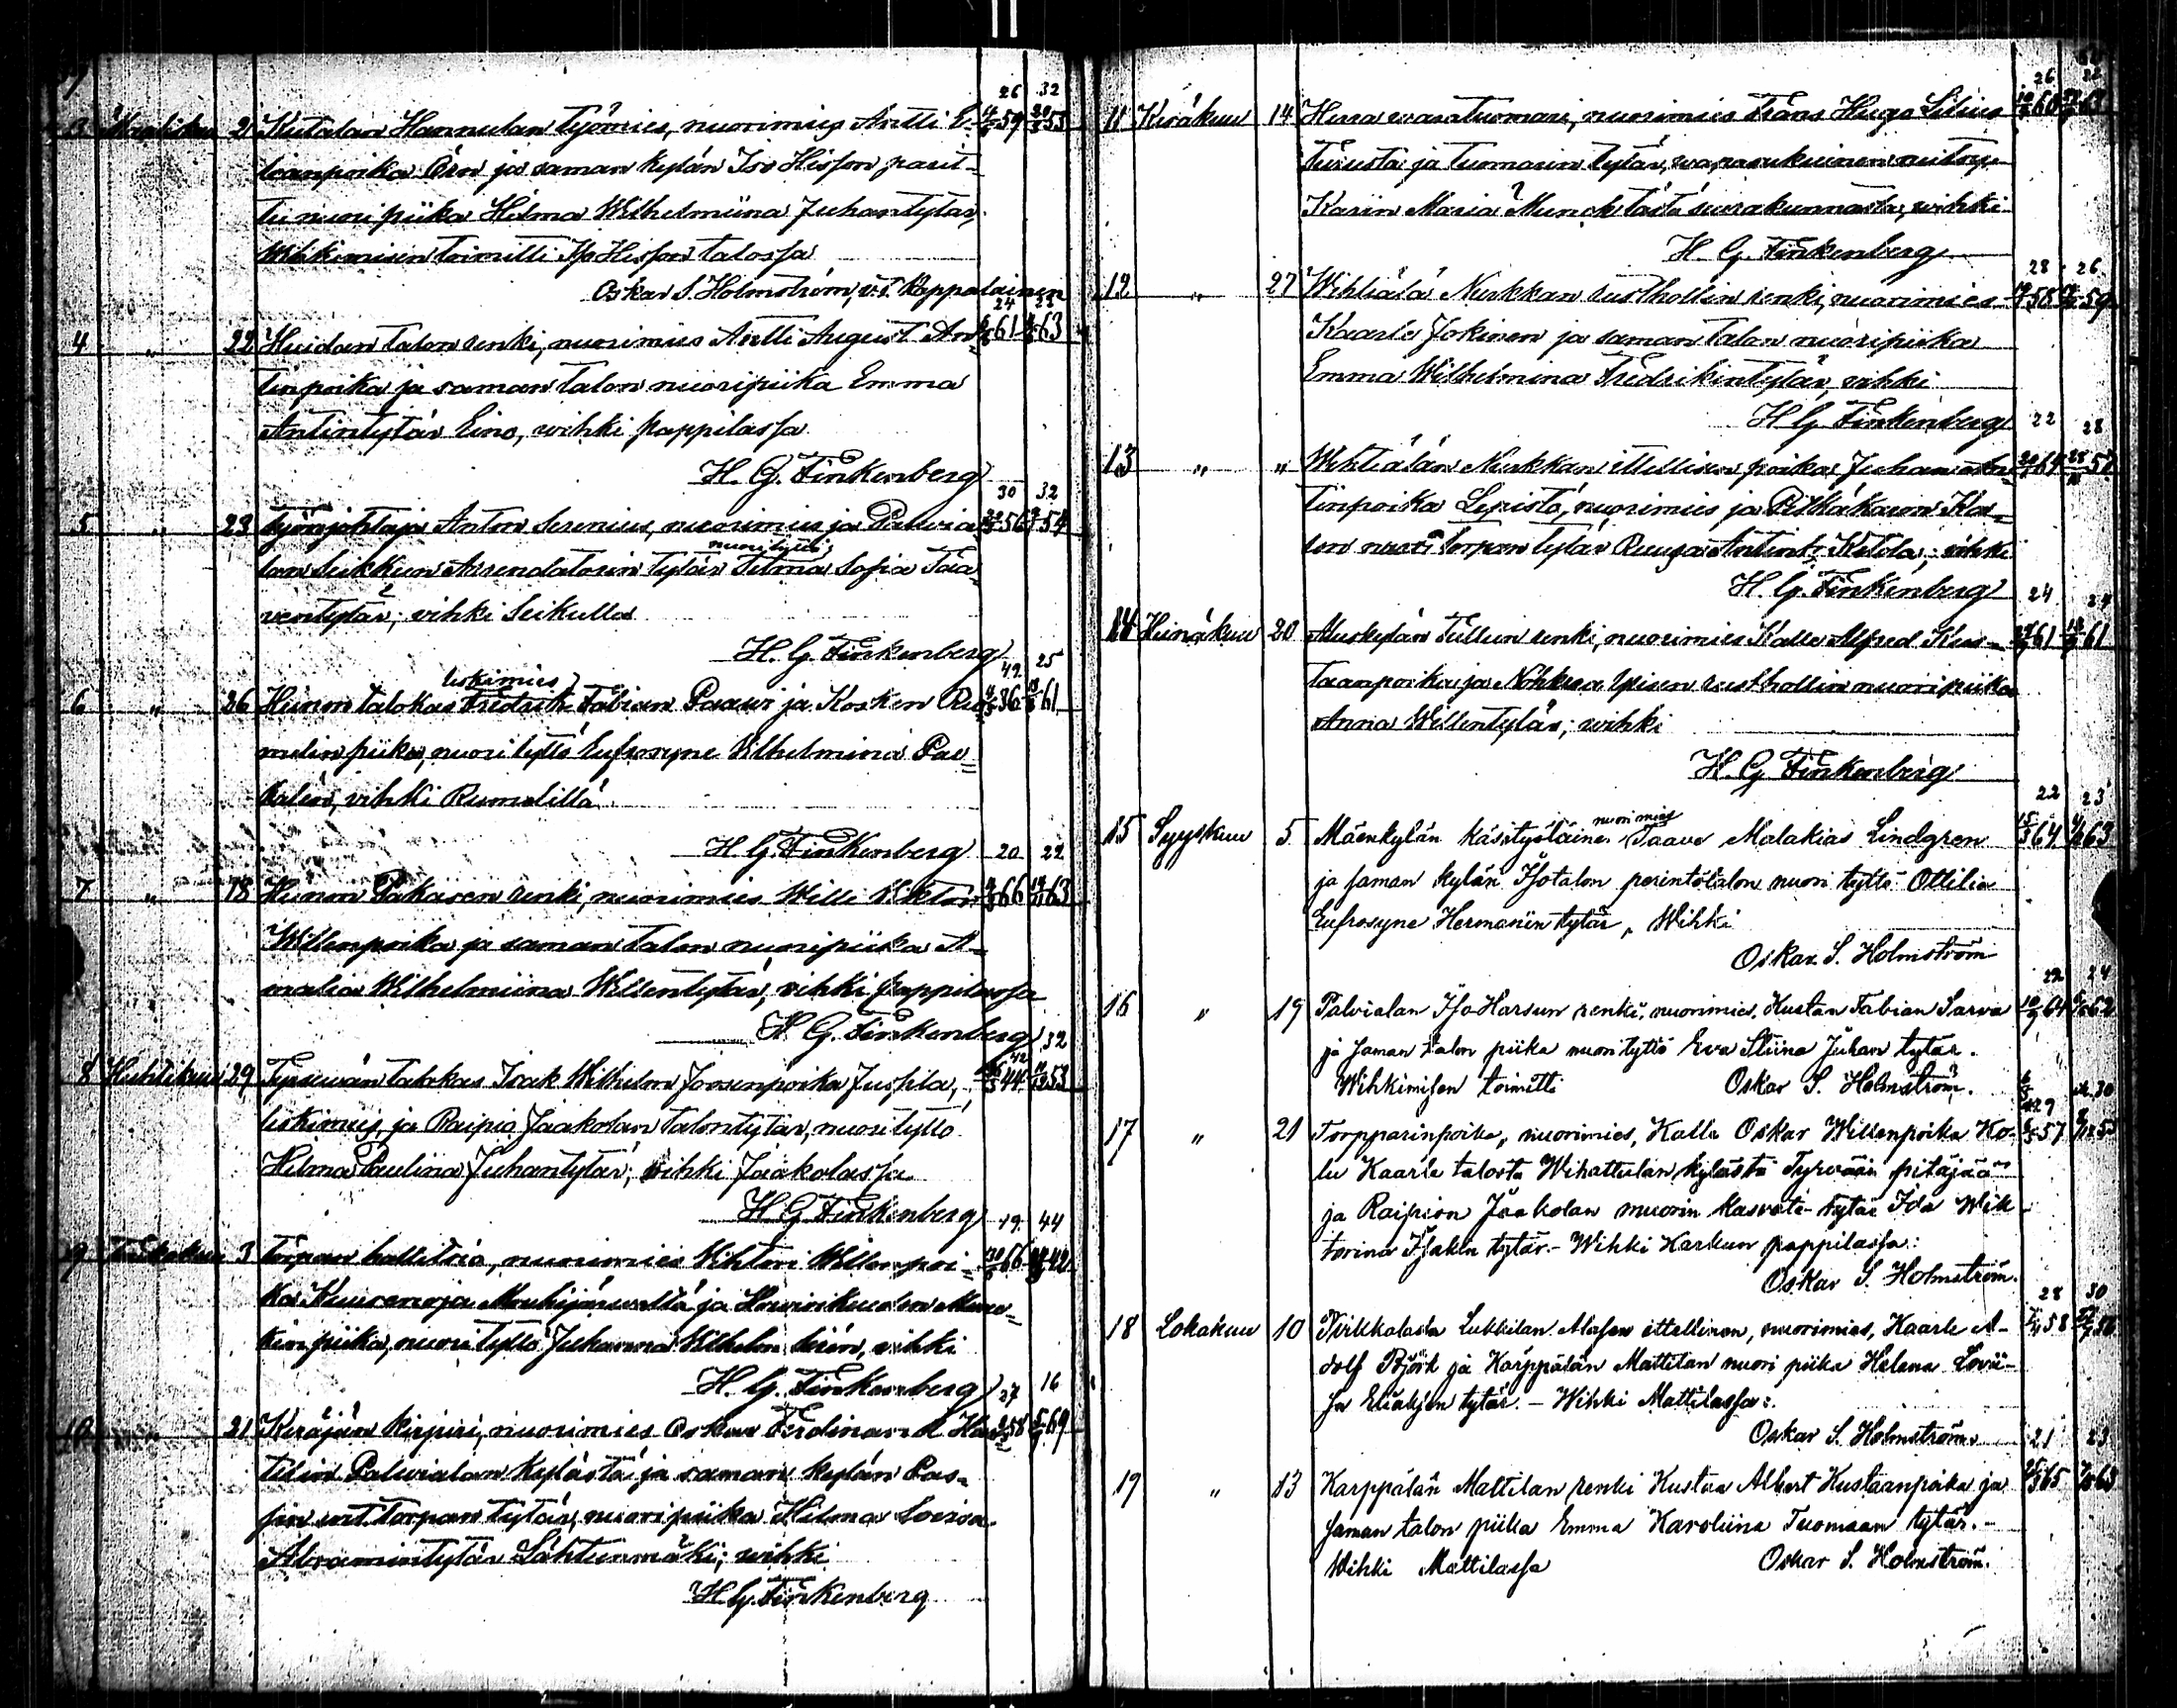 26 32
3 21 Kutalan Hannulan työmies, nuorimies Antti E- 59 55
lianpoika Örn ja saman kylän Iso Hisson parit-
tu nuori piika Hilma Wilhelmiina Juhantytär,
Wihkimisen toimitti Iso Hissan talossa
Oskar S. Holmström, v.t. Kappalainen
24
4 " 22 Huidan talon renki, nuorimies Antti August An- 61 63
tinpoika ja saman talon nuoripiika Emma
Antintytär Eino, wihki pappilassa
H. G. Finkenberg
30 32
5 " 23 Työnjohtaja Anton Serenius, nuorimies ja Palvia- 56 54
nuorityttö,
lan Seikkun Arrendatorin tytär Selma Sofia Taa-
ventytär; vihki Seikulla
H. G. Finkenberg
49 25
leskimies
6 " 26 Heinon talokas Fredrik Fabian Paawi ja Kosken Ru- 36 61
melin piika, nuori tyttö Eufrosyne Wilhelmina
vihki Rumelillä
H. G. Finkenberg 20 22
7 " 18 Heinon Pakasen renki, nuorimies Wille Viktor 66 63
Willenpoika ja saman talon nuoripiika A-
malia Wilhelmiina Willentytär, vihki pappilassa
H. G. Finkenberg 32
42
8 Huhtikuu 29 Tyrwään talokas Isak Wilhelm Joosenpoika Jussila, 44 53
leskimies, ja Raipio Jaakolan talontytär, nuori tyttö
Hilma Paulina Juhantytär; vihki Jaakolassa
H. G. Finkenberg 19 44
9 Toukokuu 3 Torpan haltitsia, nuorimies Wihtori Willenpoi- 66 42
ka Mouhijärweltä ja
piika, nuori tyttö Juhanna Wilhelmiina, vihki
H. G. Finkenberg 27 16
10 21 Keräjän kirjuri, nuorimies Oskar Ferdinand 58 69
Palvialan kylästä ja saman kylän Pas-
sin torpan tytär, nuori piika Hilma Lovisa
Abramintytär Lähteenmäki; wihki
H. G. Finkenberg
26
11 Kesäkuu 14 Herra waratuomari, nuorimies Frans Hugo Lilius 60 63
Turusta ja tuomarin tytär,
Karin Maria Munck tästä seurakunnasta, wihki
H. G. Finkenberg
28 26
12 " 27 Wihtiälä Nuikkan rusthollin renki, nuorimies 58 59
Kaarle Jokinen ja saman talon nuoripiika
Emma Wilhelmena Fredrikintytär, vihki
H. G. Finkenberg 22 28
13 " " Wihtiälän Nuikkan itsellisen poika, Juhan 64 57
tinpoika Lepistö, nuorimies ja
lon nuori torpan tytär Ruusa Antint. Ketola; vihki
H. G. Finkenberg 24 24
14 Heinäkuu 20 renki, nuorimies Kalle Alfred Kus- 61 61
taanpoika ja rusthollin nuoripiika
Anna Willentytär; wihki
H. G. Finkenberg
22 23
nuorimies
15 Syyskuu 5 Mäenkylän käsityöläinen Taave Malakias Lindgren 64 63
ja saman kylän Isotalon perintötalon nuori tyttö Ottilia
Eufrosyne Hermanin tytär, Wihki
Oskar S. Holmström
22 24
16 " 19 Palvialan Iso Harsun renki, nuorimies, Kustan Fabian Sarva 64 62
ja saman talon piika nuorityttö Eva Stiina Juhan tytär.
Wihkimisen toimitti Oskar S. Holmström.
29 30
17 " 21 Torpparinpoika, nuorimies, Kalle Oskar Willenpoika Ko- 57 55
lu Kaarle talosta Wihattulan kylästä Tyrvään pitäjää
ja Raipion Jaakolan muorin kasvatti-tytär Ida Wik-
torina Isakin tytär. - Wihki Karkun pappilassa:
Oskar S. Holmström.
28 30
18 Lokakuu 10 Pirkkalasta Lukkilan Alasen itsellinen, nuorimies, Kaarle A- 58
dolf Björk ja Karppälän Mattilan nuori piika Helena Lovii-
sa Eliaksen tytär. - Wihki Mattilassa:
Oskar S. Holmström. 21 23
19 " 13 Karppälän Mattilan renki Kustaa Albert Kustaanpoika ja 65 63
saman talon piika Emma Karoliina Tuomaan tytär. -
Wihki Mattilassa Oskar S. Holmström.